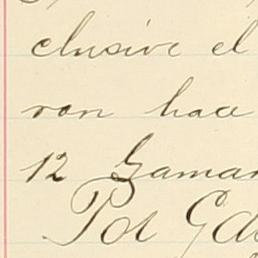 clusive el
ron hace
12 Gamar
Pol Gd